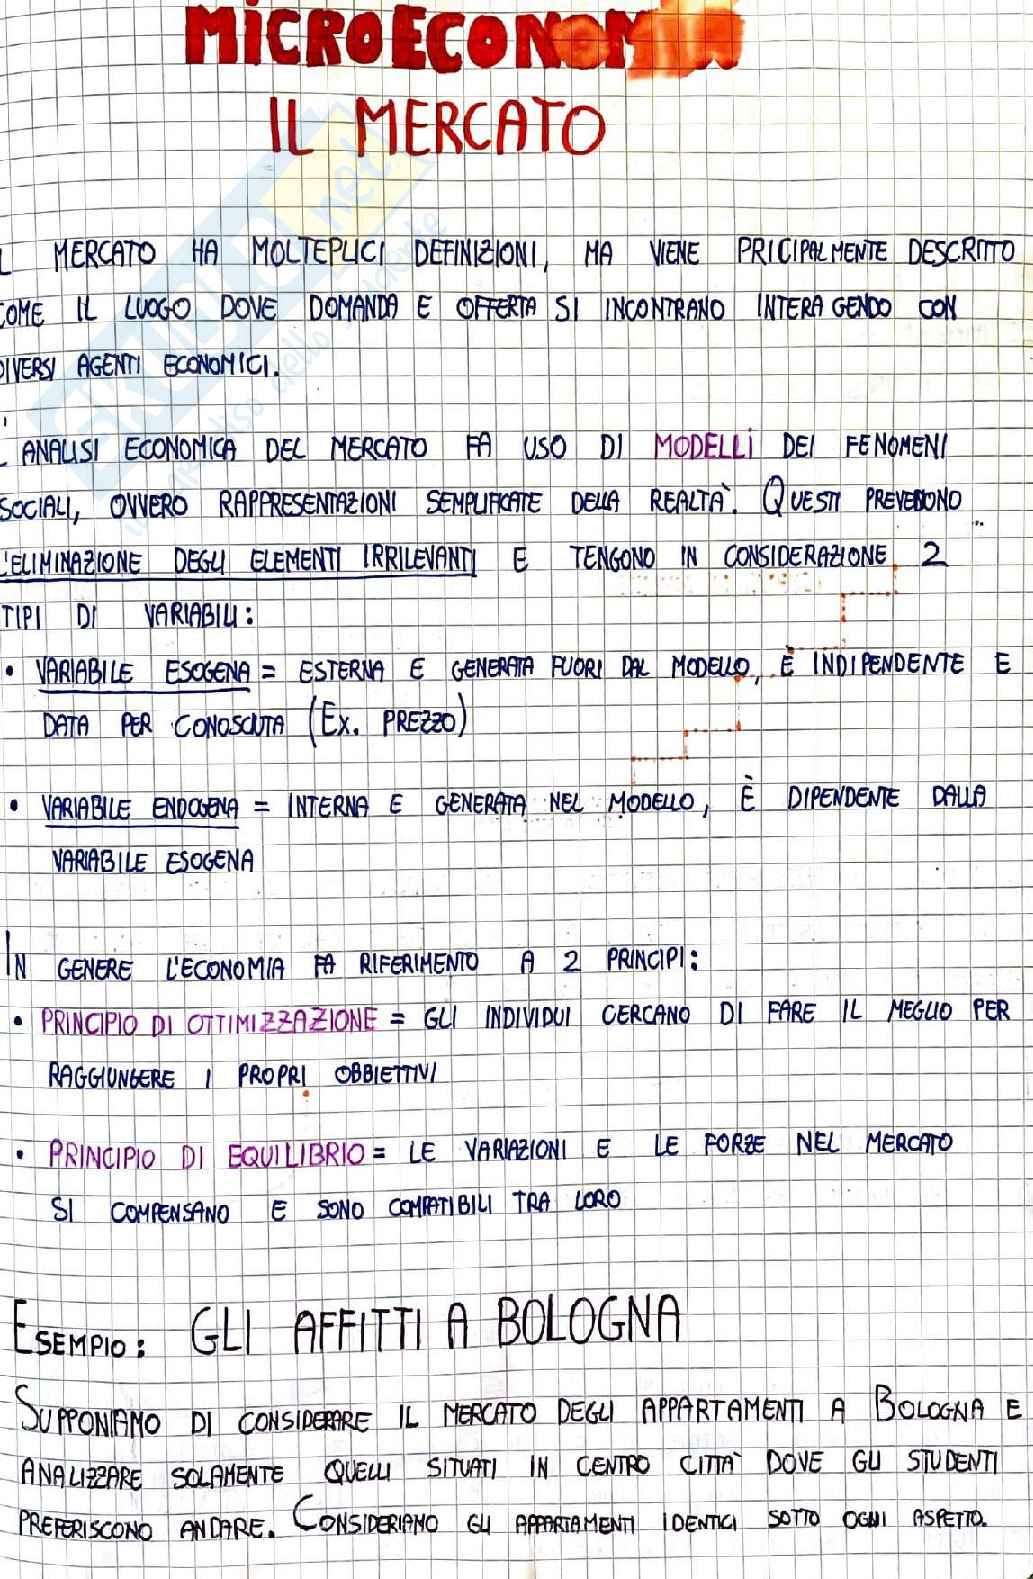 MICROECONOMIA
IL MERCATO
L MERCATO HA MOLTEPLICI DEFINIZIONI, MA VIENE PRICIPALMENTE DESCRITTO
COME IL LUOGO DOVE DOMANDA E OFFERTA SI INCONTRANO INTERAGENDO CON
DIVERSI AGENTI ECONOMICI.
L'ANALISI ECONOMICA DEL MERCATO FA USO DI MODELLI DEI FENOMENI
SOCIALI, OVVERO RAPPRESENTAZIONI SEMPLIFICATE DELLA REALTÀ. QUESTI PREVEDONO
L'ELIMINAZIONE DEGLI ELEMENTI IRRILEVANTI E TENGONO IN CONSIDERAZIONE 2
TIPI DI VARIABILI:
• VARIABILE ESOGENA = ESTERNA E GENERATA FUORI DAL MODELLO, È INDIPENDENTE E
DATA PER CONOSCIUTA (EX. PREZZO)
• VARIABILE ENDOGENA = INTERNA E GENERATA NEL MODELLO, È DIPENDENTE DALLA
VARIABILE ESOGENA
IN GENERE L'ECONOMIA FA RIFERIMENTO A 2 PRINCIPI:
• PRINCIPIO DI OTTIMIZZAZIONE = GLI INDIVIDUI CERCANO DI FARE IL MEGLIO PER
RAGGIUNGERE I PROPRI OBBIETTIVI
• PRINCIPIO DI EQUILIBRIO = LE VARIAZIONI E LE FORZE NEL MERCATO
SI COMPENSANO E SONO COMPATIBILI TRA LORO
ESEMPIO: GLI AFFITTI A BOLOGNA
SUPPONIAMO DI CONSIDERARE IL MERCATO DEGLI APPARTAMENTI A BOLOGNA E
ANALIZZARE SOLAMENTE QUELLI SITUATI IN CENTRO CITTÀ DOVE GLI STUDENTI
PREFERISCONO ANDARE. CONSIDERIAMO GLI APPARTAMENTI IDENTICI SOTTO OGNI ASPETTO.